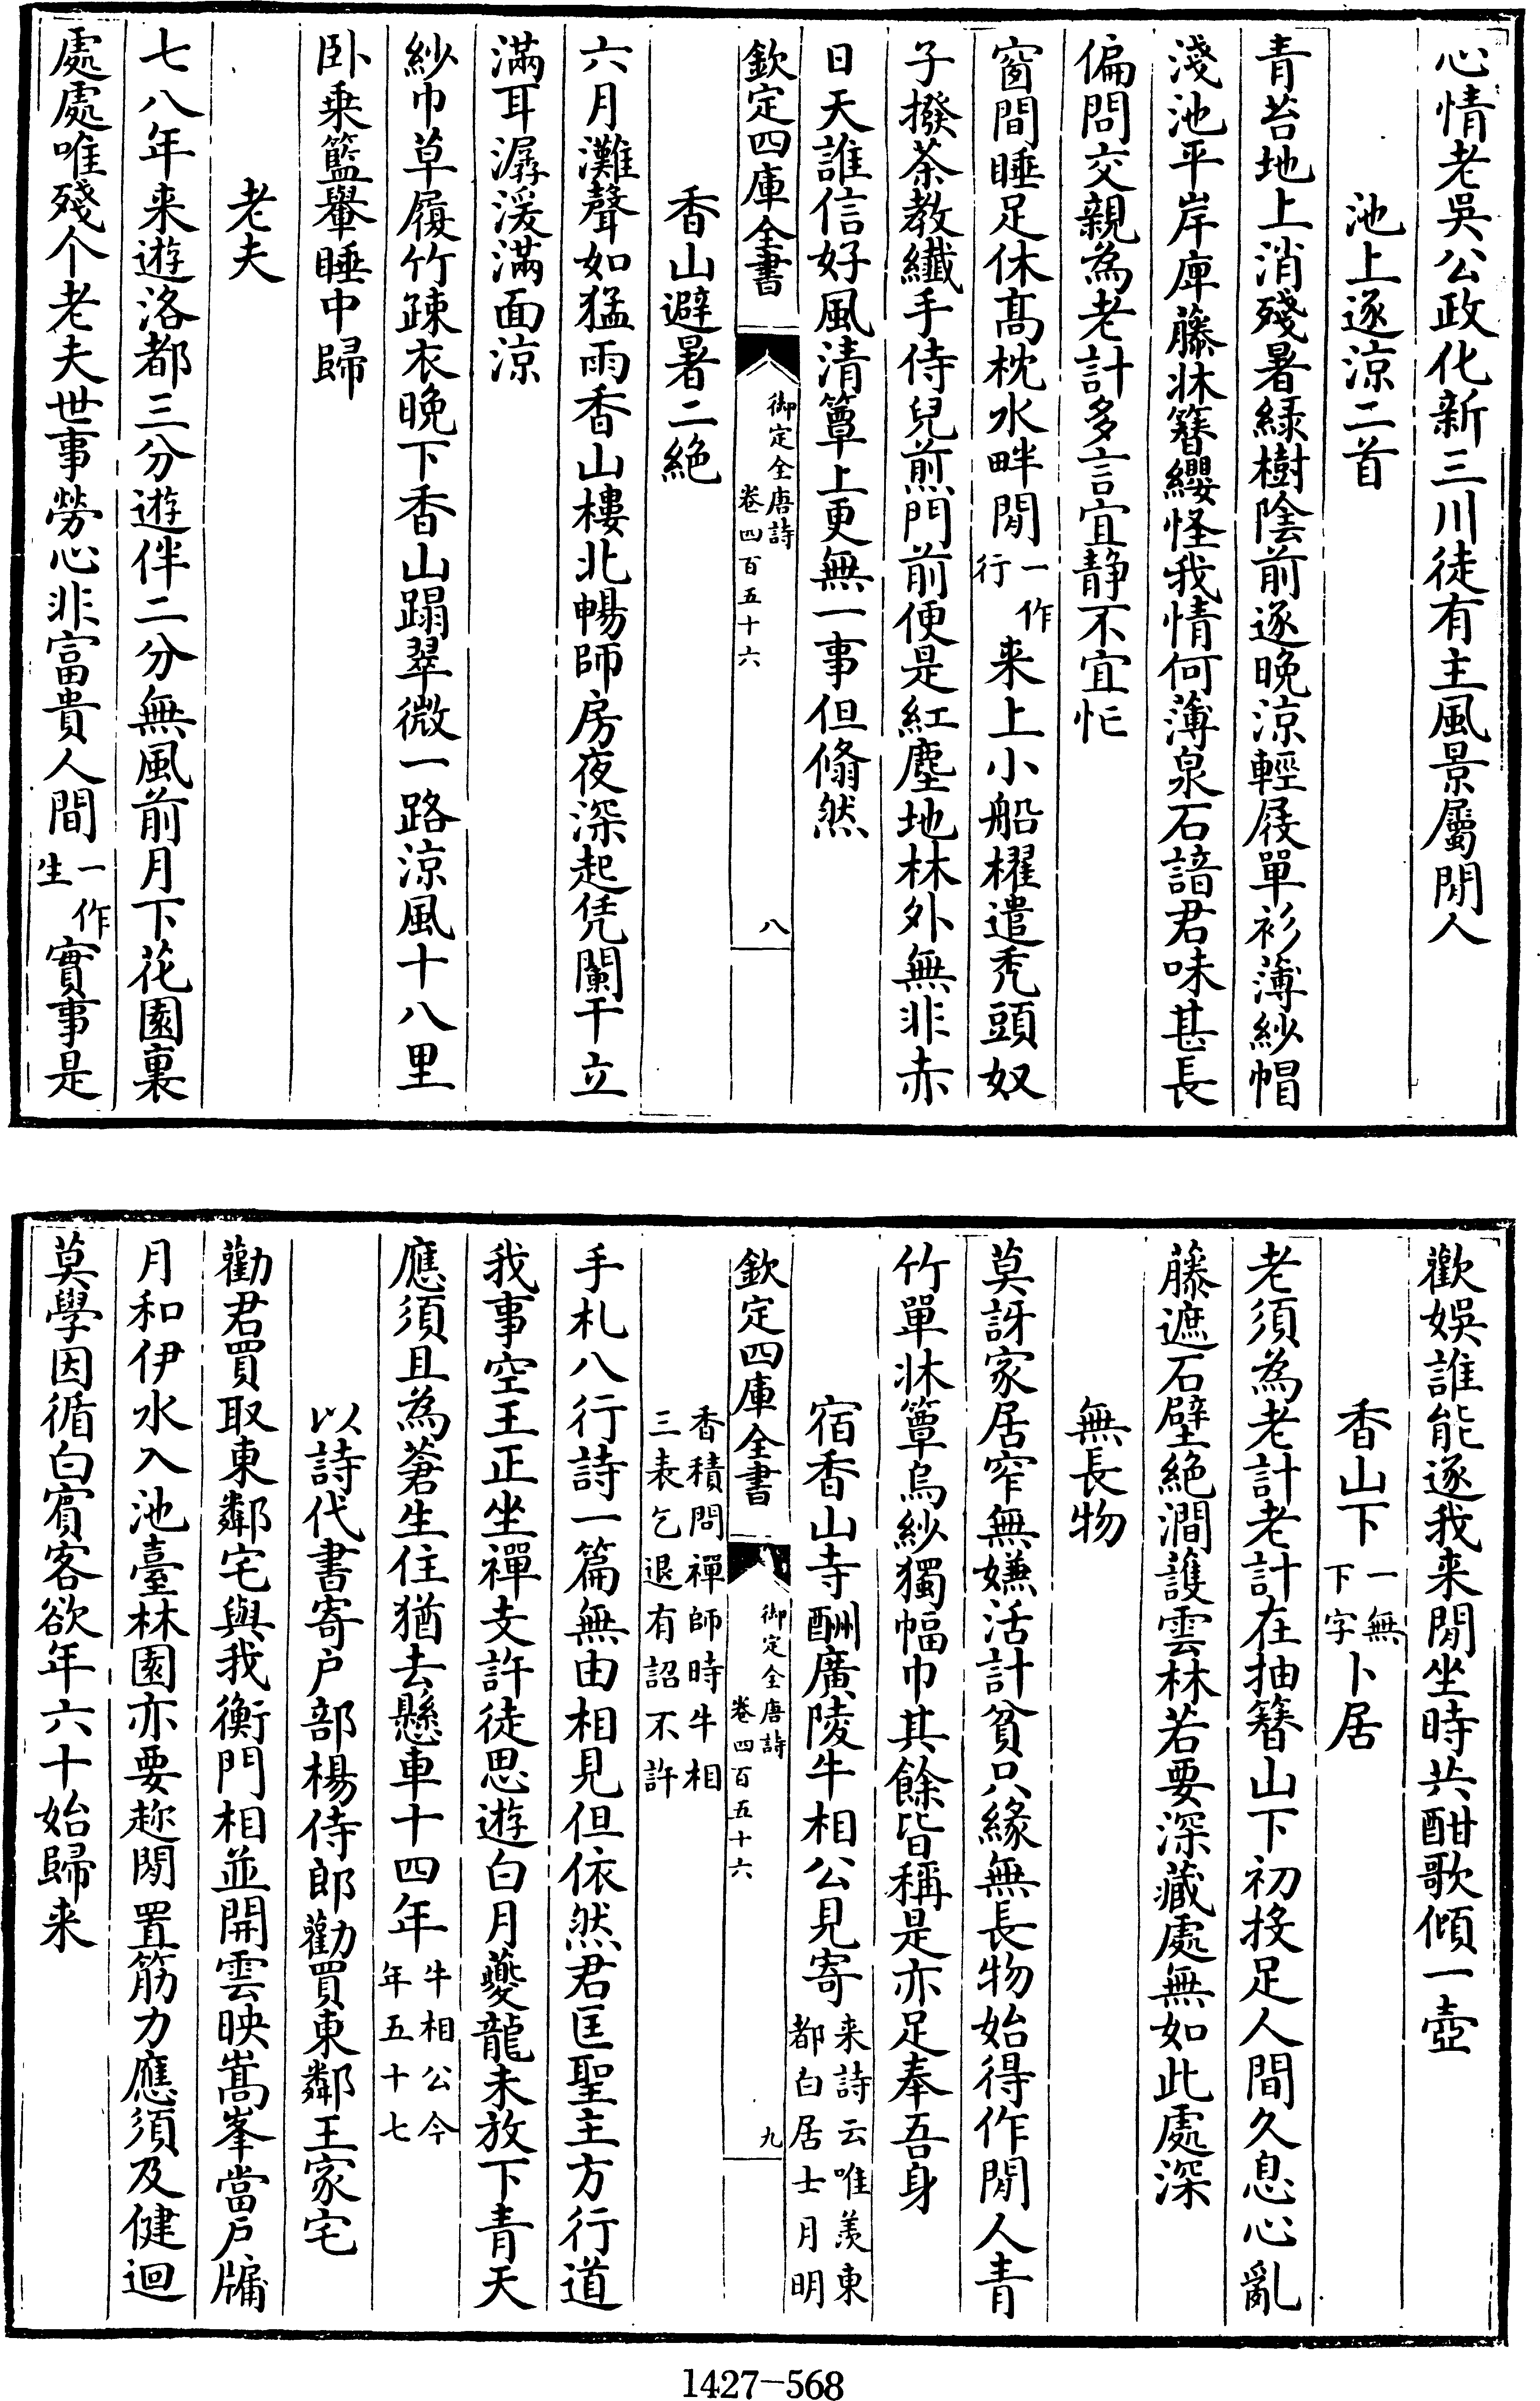 心情老吳公政化新三川徒有主風景屬閒人
池上逐涼二首
青苔地上消殘暑緑樹陰前逐晚涼輕屐單衫薄紗帽
淺池平岸庳藤牀簪纓怪我情何薄泉石諳君味甚長
偏問交親為老計多言宜静不宜忙
窗間睡足休髙枕水畔閒一作行来上小船櫂遣秃頭奴
子撥茶教纎手侍兒煎門前便是紅塵地林外無非赤
日天誰信好風清簟上更無一事但翛然
欽定四庫全書
御定全唐詩
卷四百五十六
八
香山避暑二絶
六月灘聲如猛雨香山樓北暢師房夜深起凭闌干立
滿耳潺湲滿面涼
紗巾草履竹疎衣晚下香山蹋翠微一路涼風十八里
卧乗籃轝睡中歸
老夫
七八年来遊洛都三分遊伴二分無風前月下花園裏
處處唯殘个老夫世事勞心非富貴人間一作生實事是
歡娛誰能逐我来閒坐時共酣歌傾一壺
香山下一無下字卜居
老須為老計老計在抽簪山下初投足人間久息心亂
藤遮石壁絶澗護雲林若要深藏處無如此處深
無長物
莫訝家居窄無嫌活計貧只緣無長物始得作閒人青
竹單牀簟烏紗獨幅巾其餘皆稱是亦足奉吾身
宿香山寺酬廣陵牛相公見寄来詩云唯羨東都白居士月明
欽定四庫全書
御定全唐詩
卷四百五十六
九
香積問禪師時牛相三表乞退有詔不許
手札八行詩一篇無由相見但依然君匡聖主方行道
我事空王正坐禪支許徒思遊白月夔龍未放下青天
應須且為蒼生住猶去懸車十四年牛相公今年五十七
以詩代書寄户部楊侍郎勸買東鄰王家宅
勸君買取東鄰宅與我衡門相並開雲映嵩峯當户牖
月和伊水入池臺林園亦要趂閒置筋力應須及健迴
莫學因循白賓客欲年六十始歸来
1427-568